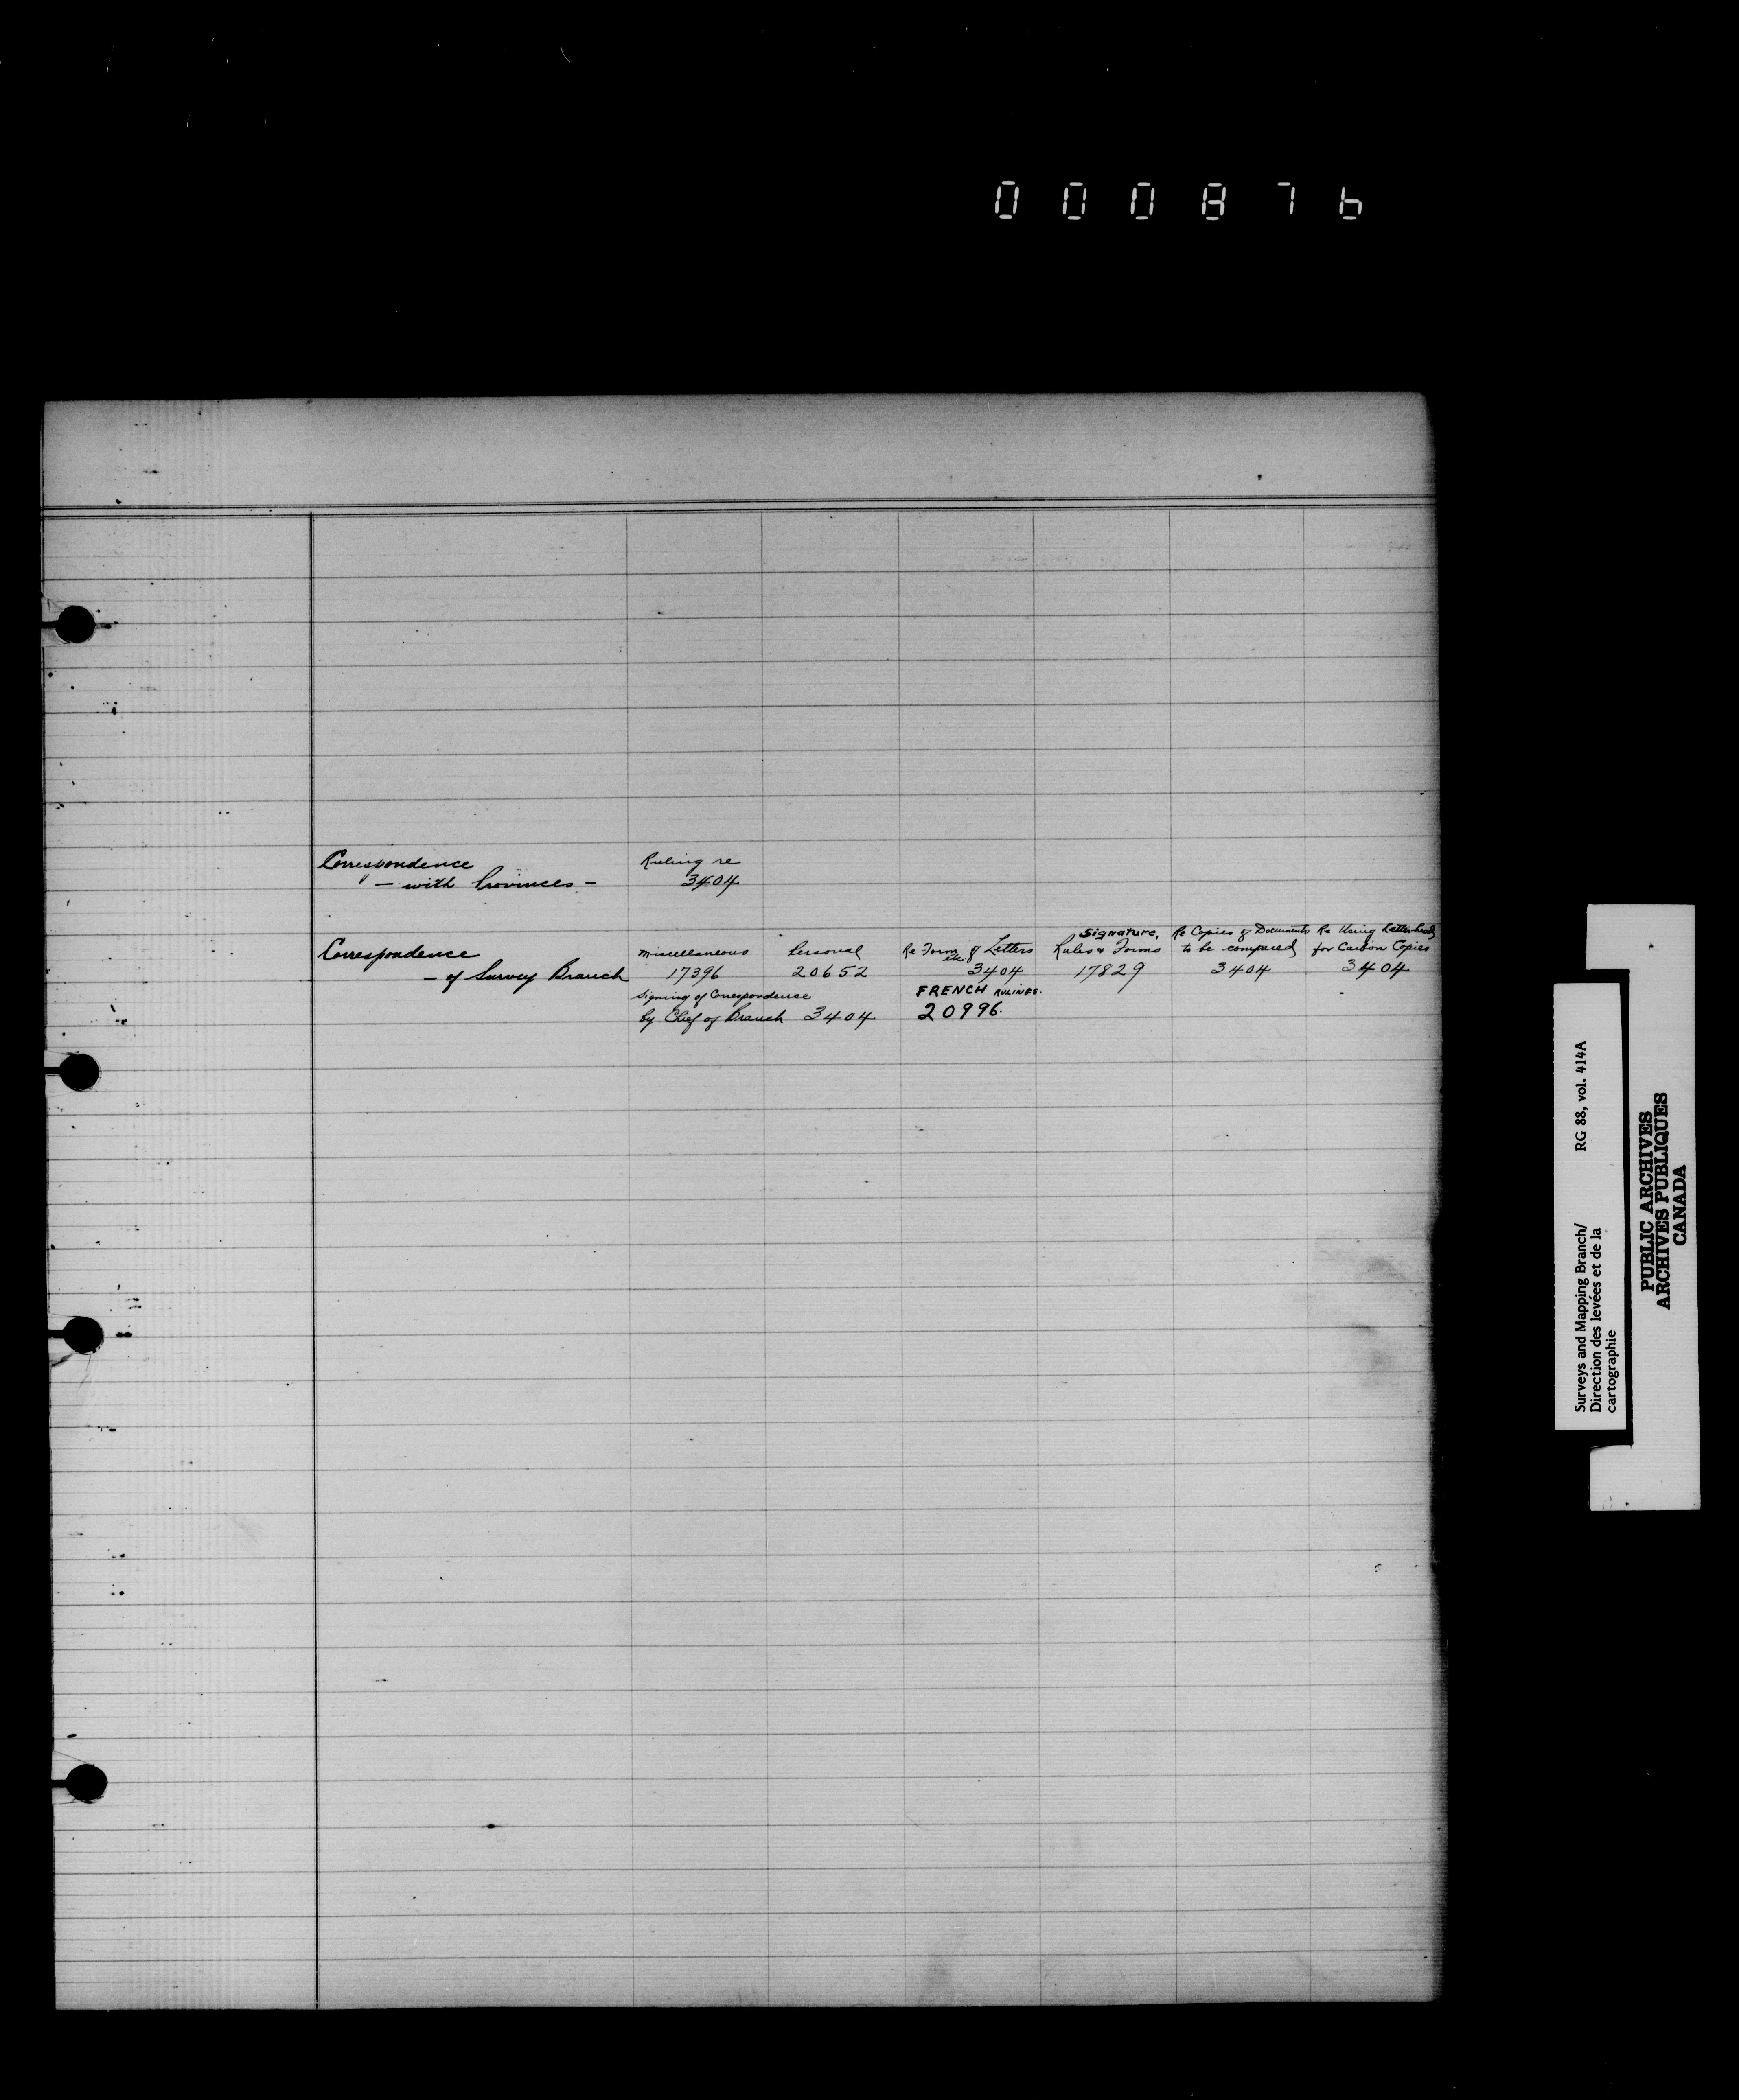 000876
Correspondence
" - with Provinces -
Ruling re
3404
Correspondence
- of Survey Branch
Miscellaneous
17396
Personal
20652
Re Form of Letters
etc
3404
Signature,
Rules & Forms
17829
Re Copies of Documents
to be compared
3404
Re Using Letterheads
for Carbon Copies
3404
Signing of Correspondence
by Chief of Branch 3404
FRENCH RULINGS.
20996.
Surveys and Mapping Branch/
Direction des levées et de la
cartographie
RG 88, vol. 414A
PUBLIC ARCHIVES
ARCHIVES PUBLIQUES
CANADA